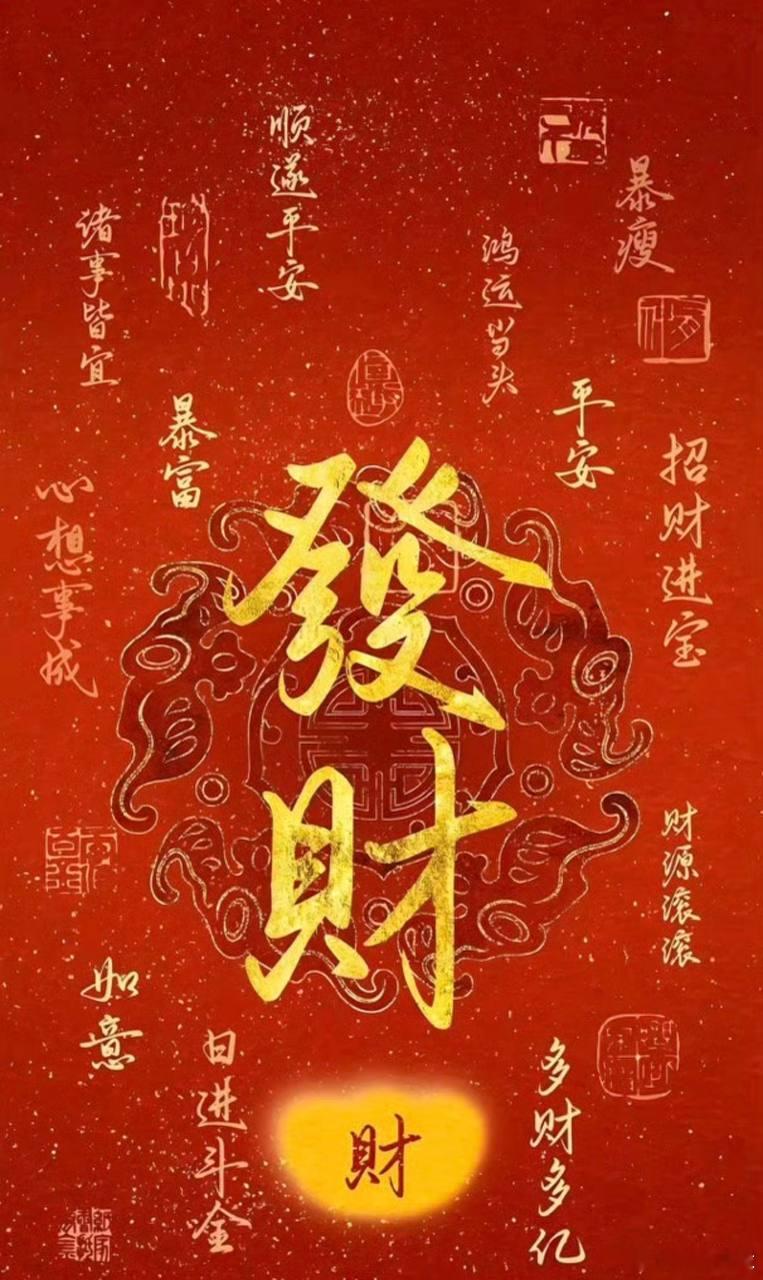 顺遂平安
暴瘦
诸事皆宜
鸿运当头
平安
暴富
招财进宝
心想事成
發財
财源滚滚
如意
日进斗金
多财多亿
財